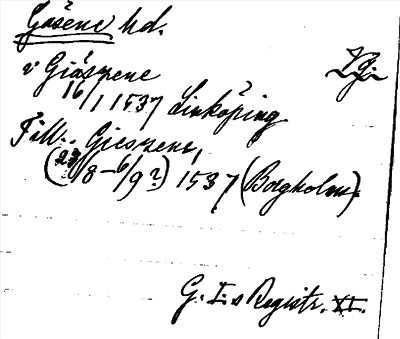 Gåsene hd.
v Giäszene ZGi
16/1 1537 Linköping
Till.. Gieszene,
(23/8 - 6/9?) 1537 (Borgholm).
G. I.s Registr. XI.